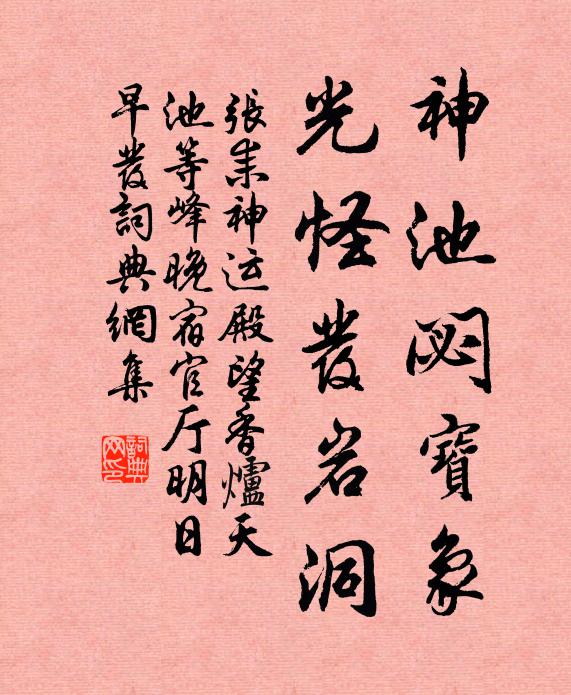 神池閟寶象
光怪發岩洞
張耒神运殿望香爐天
池等峰晚宿官厅明日
早發詞典網集
詞典网印